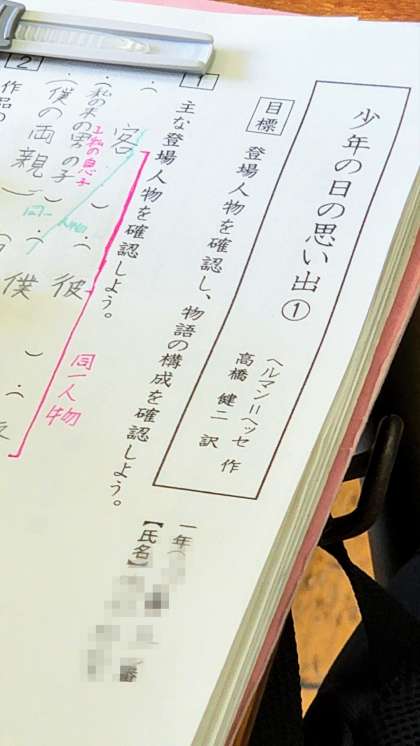 少年の日の思い出①
ヘルマン=ヘッセ 作
高橋健二 訳
目標 登場人物を確認し、物語の構成を確認しよう。
一年(
【氏名】
番
1 主な登場人物を確認しよう。
( 客 )
(私の末の男の子)
主私の息子
(僕の両親)
同一人物
彼
僕
同一人物
2
作品の